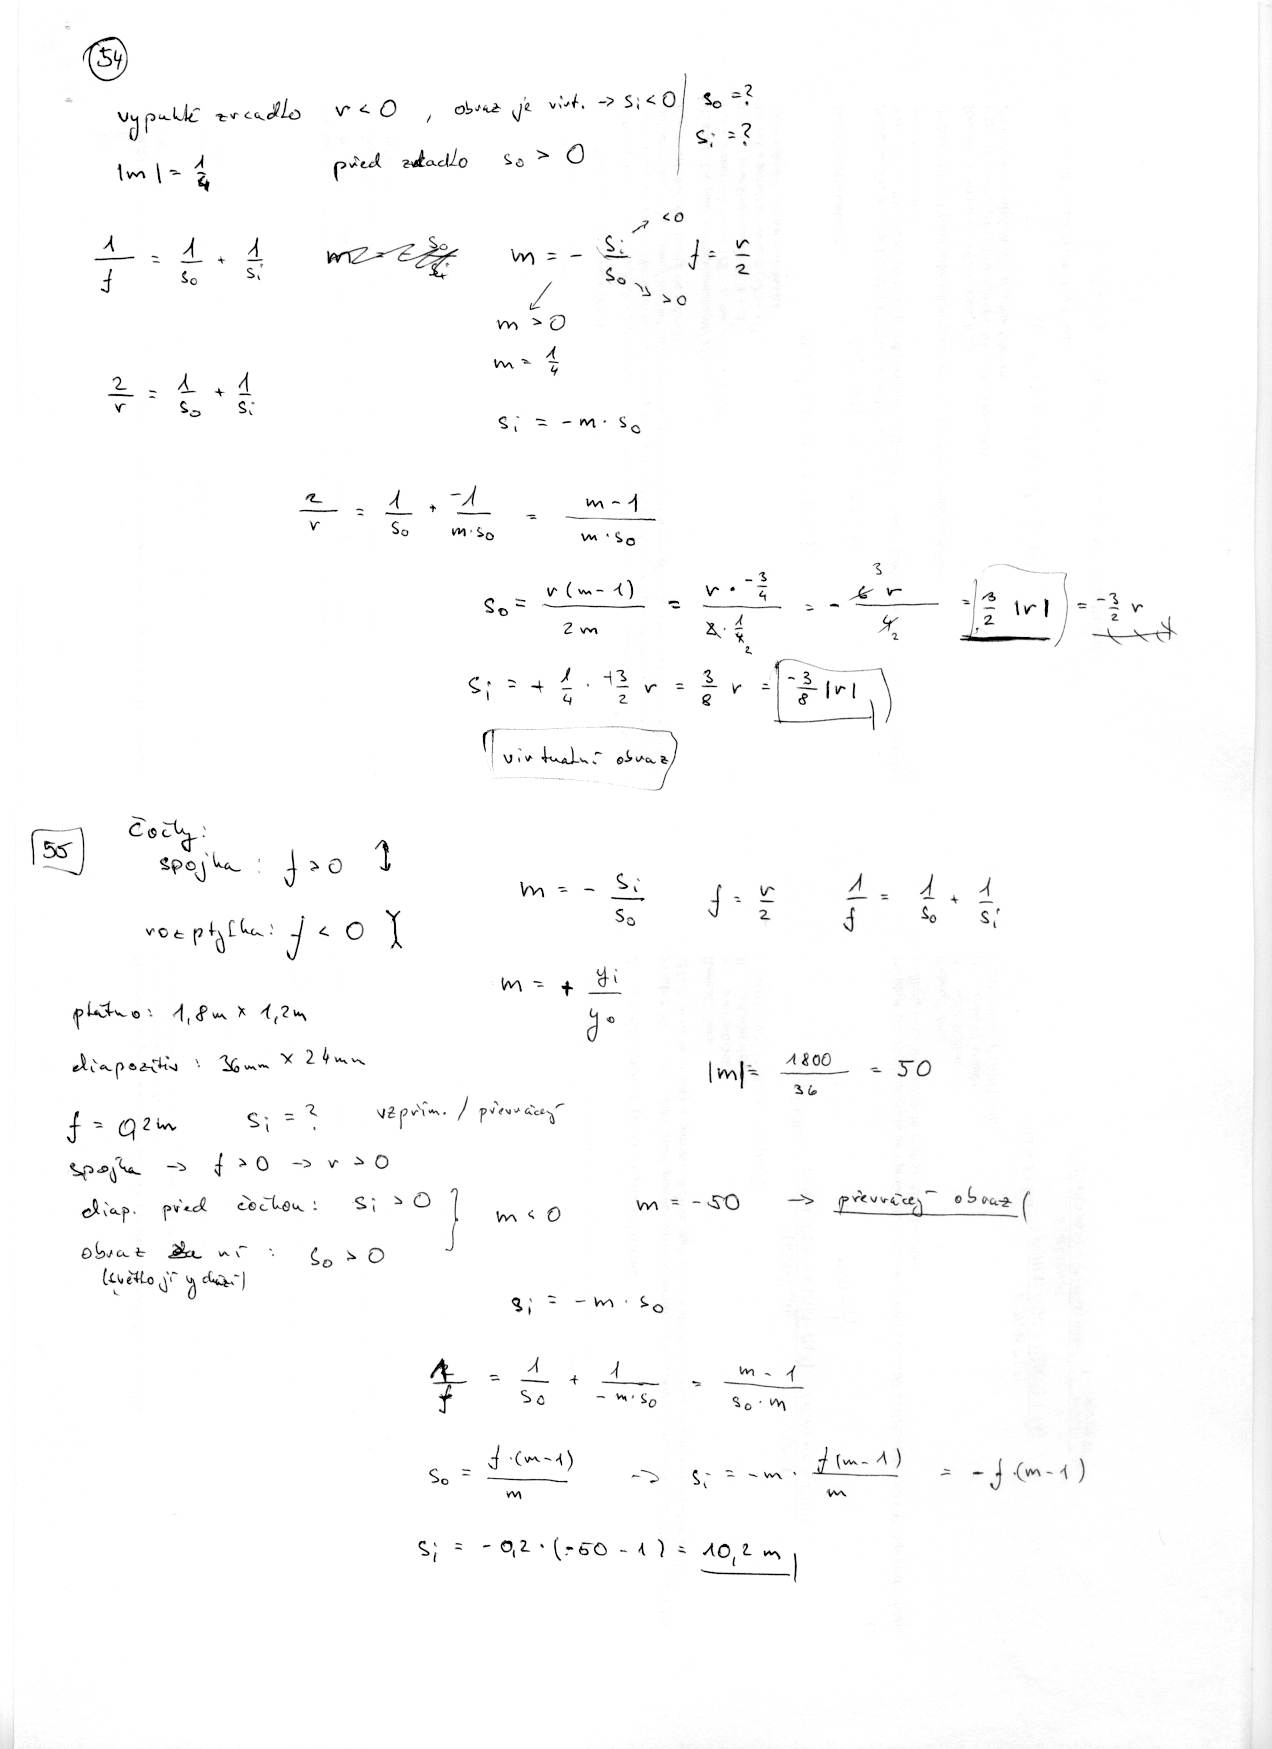 54
vypuklé zrcadlo r < 0 , obraz je virt. → si < 0 | so = ?
si = ?
|m| = 1/4 před zrcadlo so > 0
1/f = 1/so + 1/si m = - si/so f = r/2
< 0
> 0
m > 0
m = 1/4
2/r = 1/so + 1/si
si = -m · so
2/r = 1/so + -1/(m·so) = (m-1)/(m·so)
so = r(m-1)/2m = (r · -3/4)/(2 · 1/4) = - 3r/2 = 3/2 |r| = -3/2 r
si = + 1/4 · +3/2 r = 3/8 r = -3/8 |r|
virtuální obraz
55
Čočky:
spojka : f > 0
rozptylka: f < 0
m = - si/so f = r/2 1/f = 1/so + 1/si
m = + yi/yo
plátno: 1,8m × 1,2m
diapozitiv : 36mm × 24mm
|m| = 1800/36 = 50
f = 0,2m si = ? vzpřím. / převrácený
spojka → f > 0 → r > 0
diap. před čočkou: si > 0 } m < 0 m = -50 → převrácený obraz
obraz za ní : so > 0
(světlo jí
si = -m · so
1/f = 1/so + 1/(-m·so) = (m-1)/(so·m)
so = f·(m-1)/m → si = -m · f(m-1)/m = -f·(m-1)
si = -0,2·(-50-1) = 10,2 m